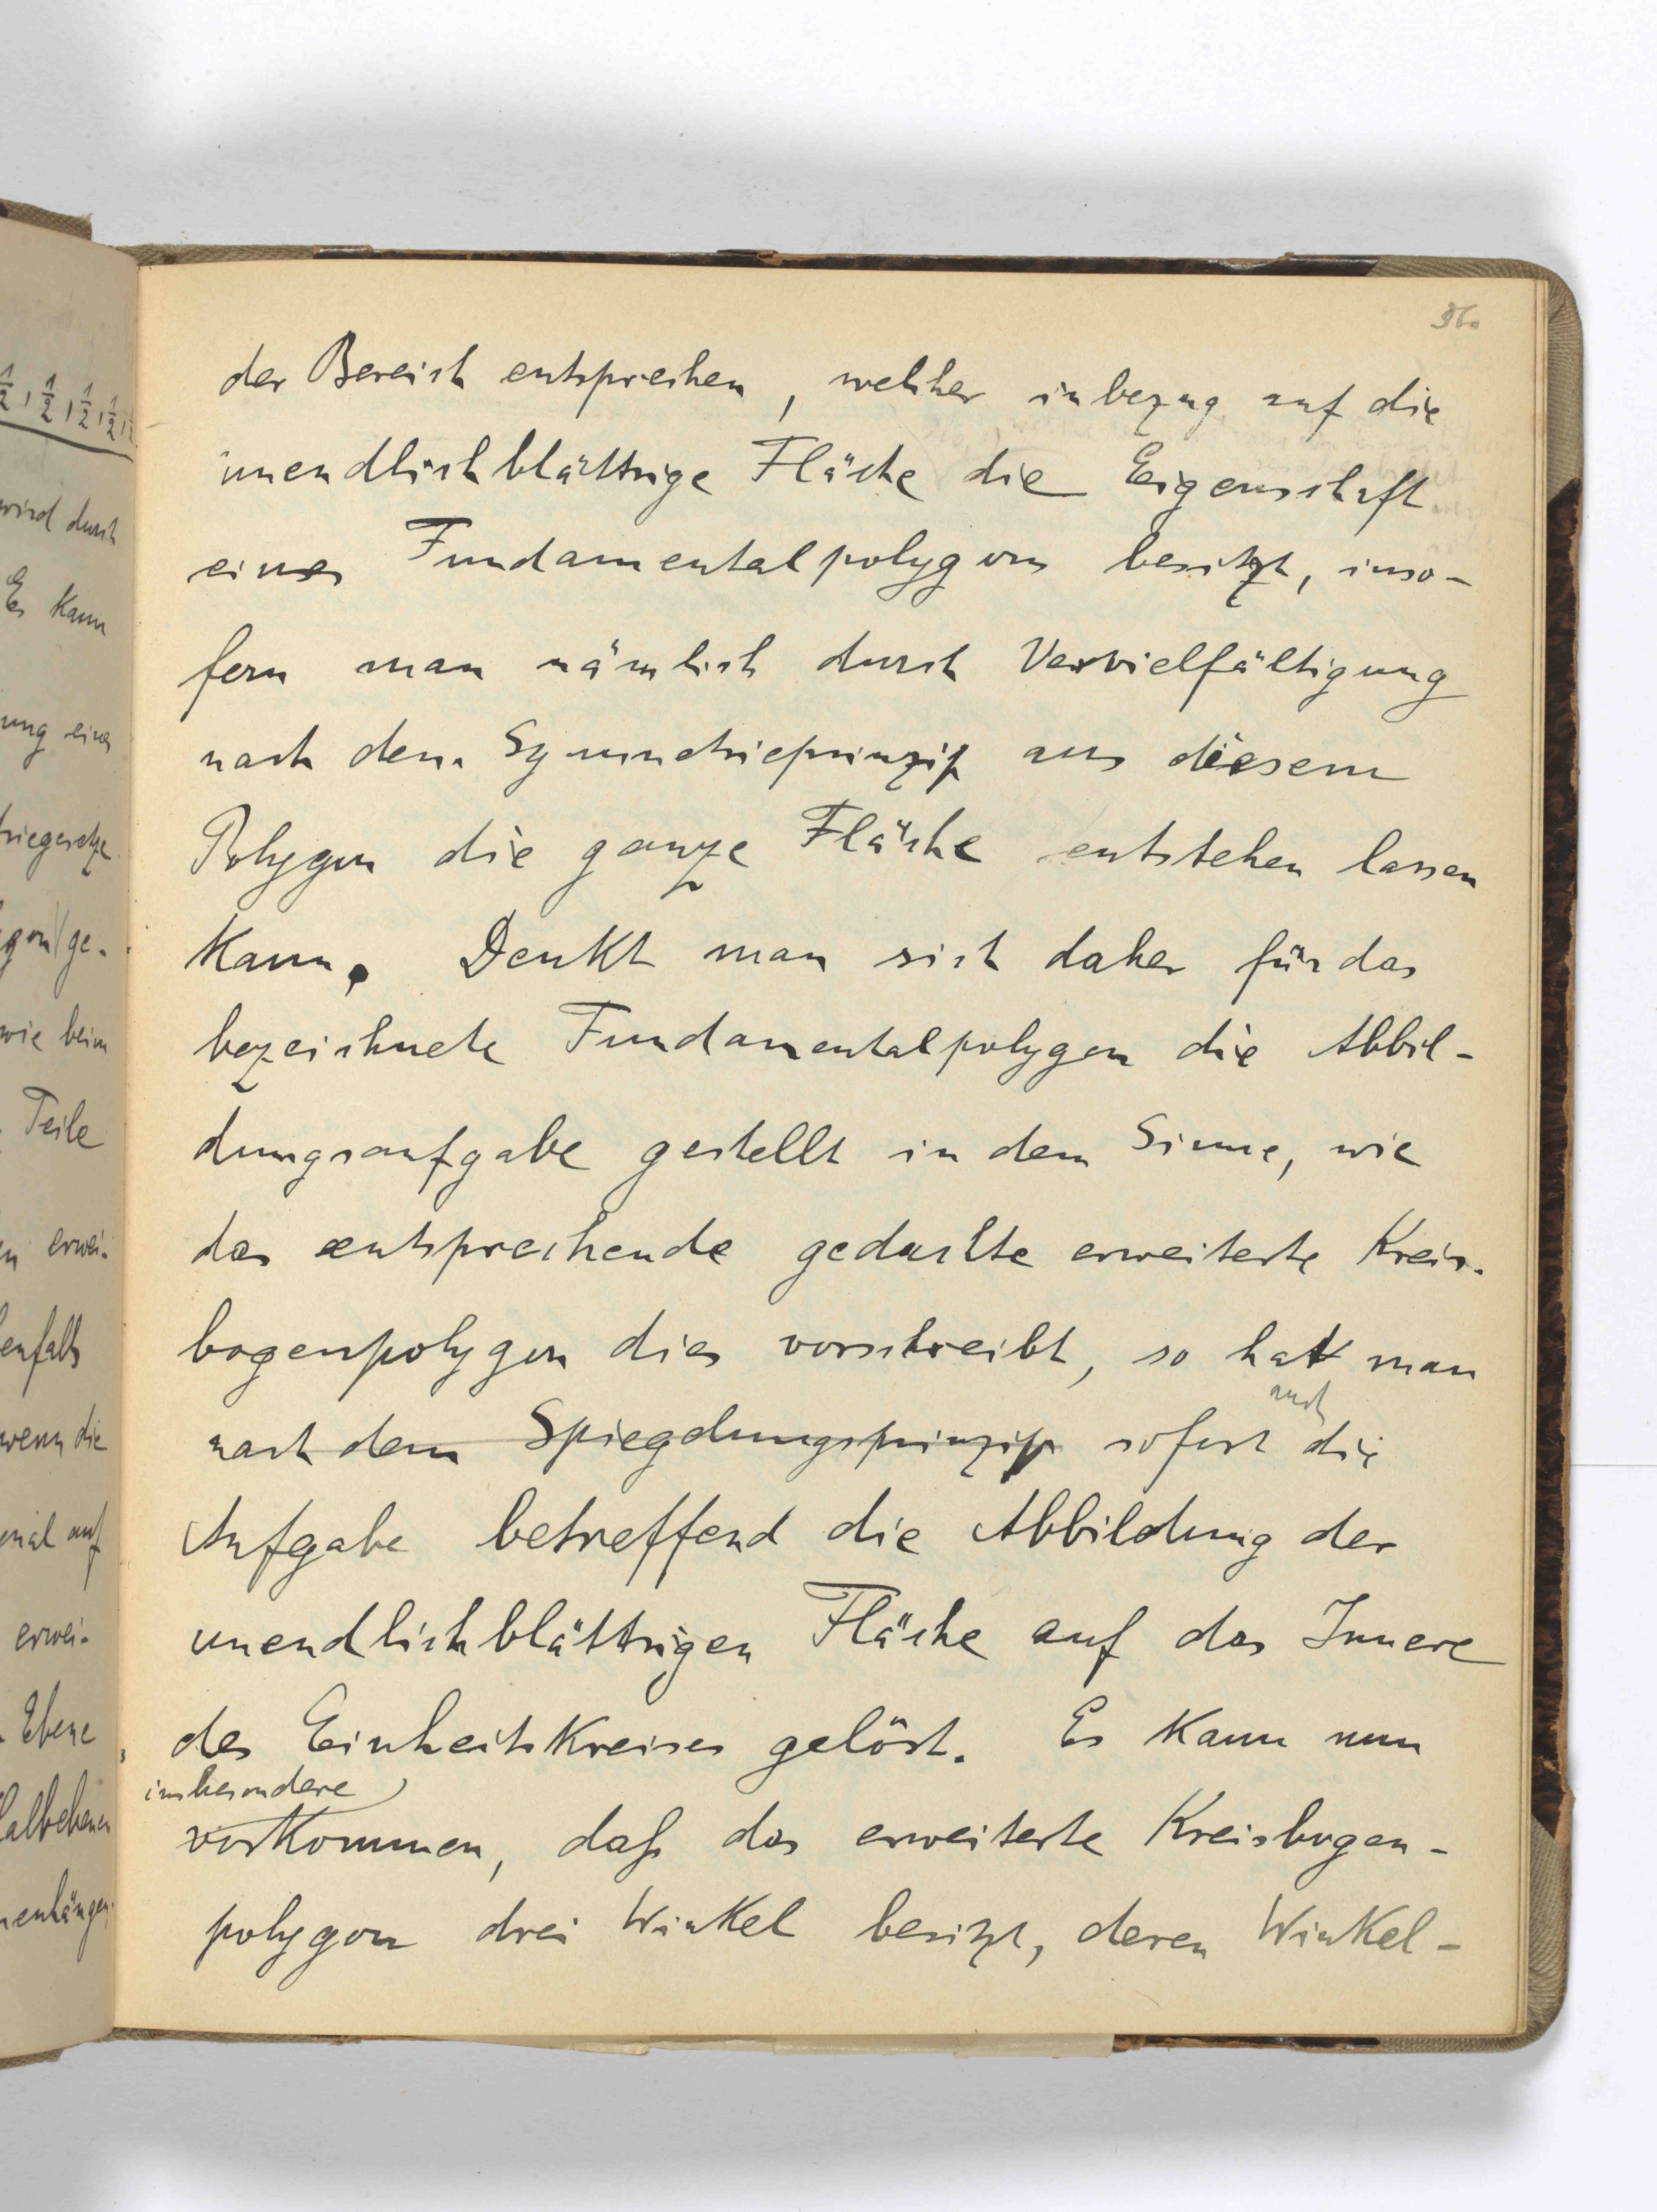 36.
der Bereich entsprechen, welcher inbezug auf die
unendlichblättrige Fläche die Eigenschaft
eines Fundamentalpolygons besitzt, inso-
fern man nämlich durch Vervielfältigung
nach dem Symmetrieprinzip aus diesem
Polygon die ganze Fläche entstehen lassen
kann. Denkt man sich daher für das
bezeichnete Fundamentalpolygon die Abbil-
dungsaufgabe gestellt in dem Sinne, wie
das entsprechende gedachte erweiterte Kreis-
bogenpolygon dies vorschreibt, so hat man
auch
nach dem Spiegelungsprinzip sofort die
Aufgabe betreffend die Abbildung der
unendlichblättrigen Fläche auf das Innere
des Einheitskreises gelöst. Es kann nun
insbesondere
vorkommen, daß das erweiterte Kreisbogen-
polygon drei Winkel besitzt, deren Winkel-
½, ½, ½, ½,
wird durch
Es kann
ung eines
triegesetze
gon ge-
wie beim
Teile
erwei-
enfalls
wenn die
auf
erwei-
Ebene
albebenen
enhängen